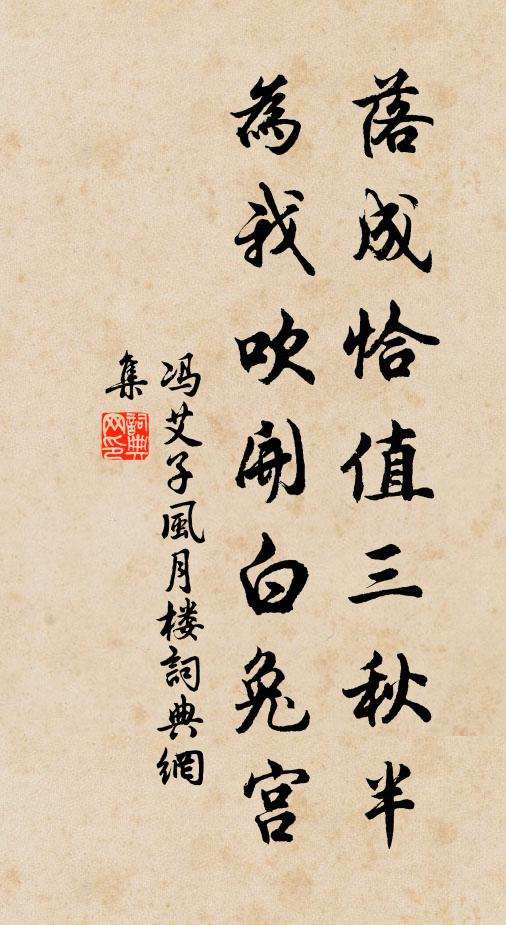 落成恰值三秋半
為我吹開白兔宮
冯艾子風月楼詞典網
集
詞典网印